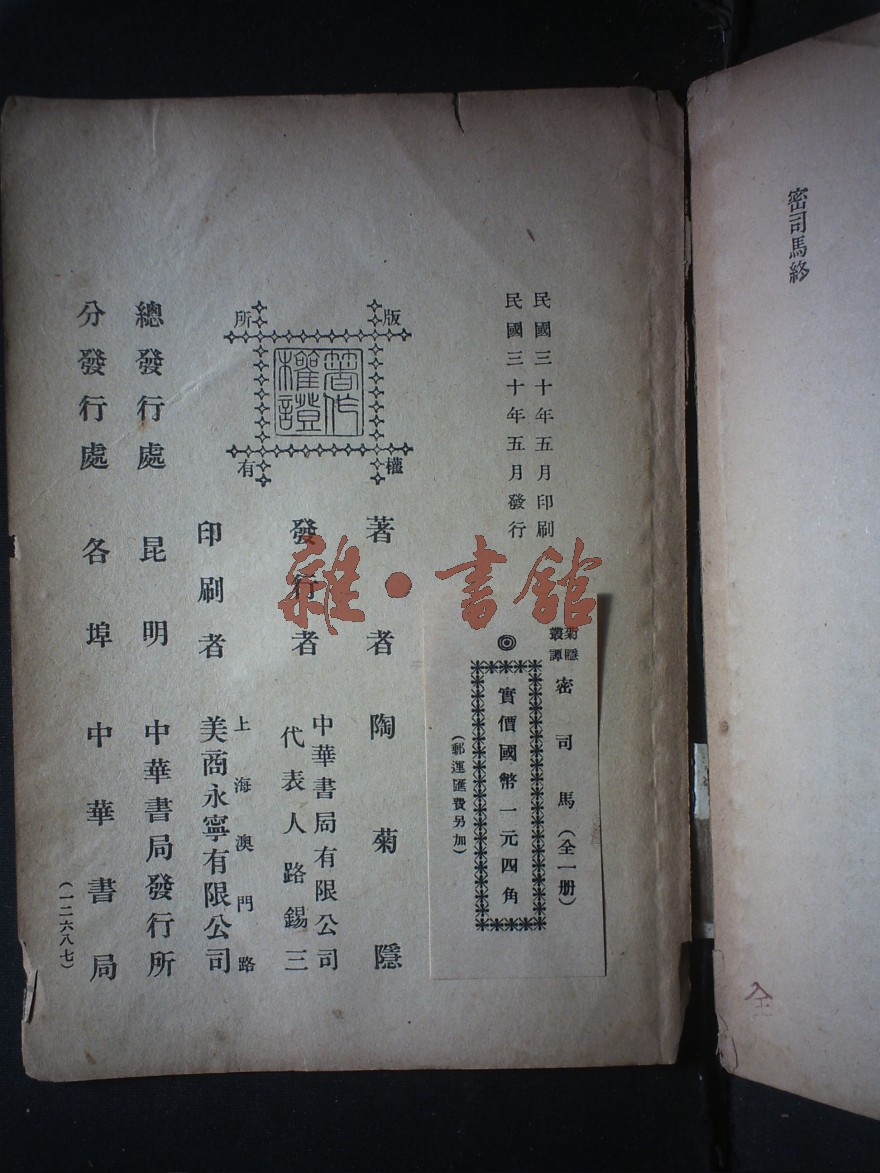 密司馬終
全
民國三十年五月印刷
民國三十年五月發行
菊隱
叢譚
密司馬（全一册）
◎
實價國幣一元四角
（郵運匯費另加）
版權所有
著作
權證
著者 陶菊隱
發行者
中華書局有限公司
代表人路錫三
印刷者
上海澳門路
美商永寧有限公司
總發行處 昆明 中華書局發行所
分發行處 各埠 中華書局
（一二六八七）
雜·書館